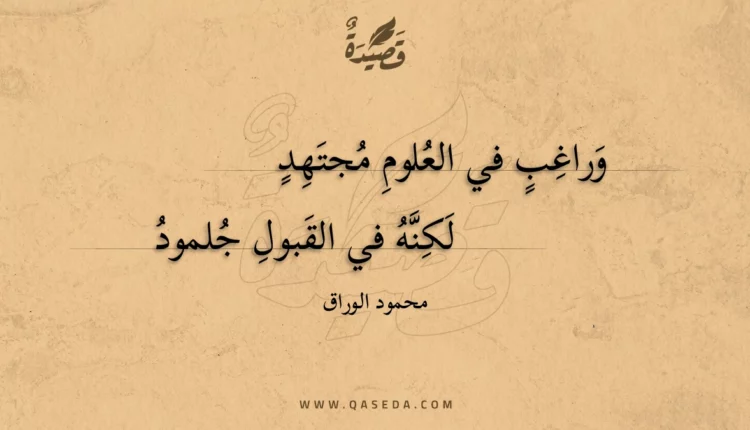 قَصِيْدَةٌ
وَراغِبٍ في العُلومِ مُجتَهِدٍ
لَكِنَّهُ في القَبولِ جُلمودُ
محمود الوراق
WWW.QASEDA.COM